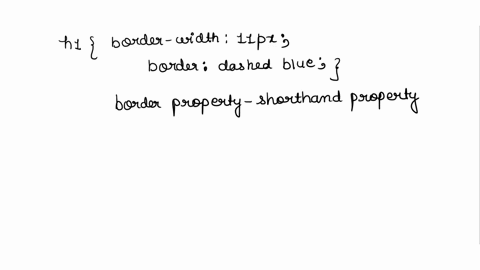 h1 { border-width: 11px;
border: dashed blue; }
border property-shorthand property